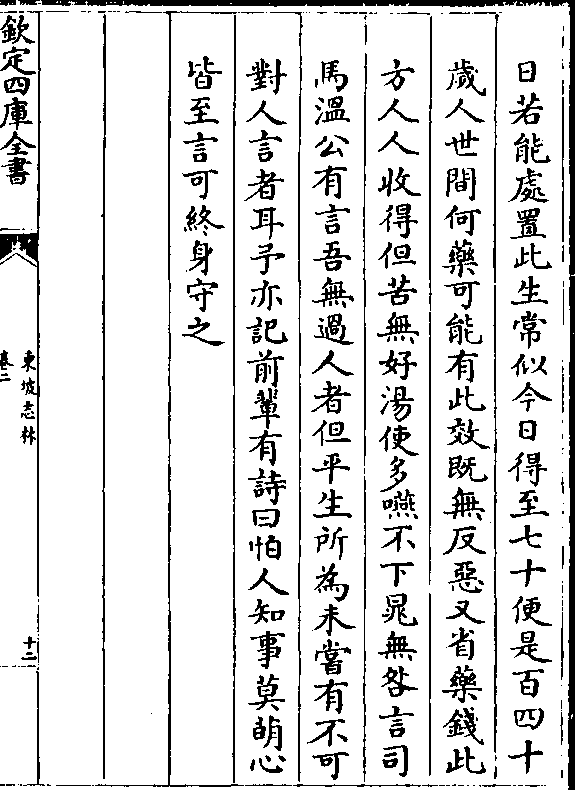 日若能處置此生常似今日得至七十便是百四十
歲人世間何藥可能有此效既無反惡又省藥錢此
方人人收得但苦無好湯使多嚥不下晁無咎言司
馬溫公有言吾無過人者但平生所為未嘗有不可
對人言者耳予亦記前輩有詩曰怕人知事莫萌心
皆至言可終身守之
欽定四庫全書
東坡志林
卷二
十二